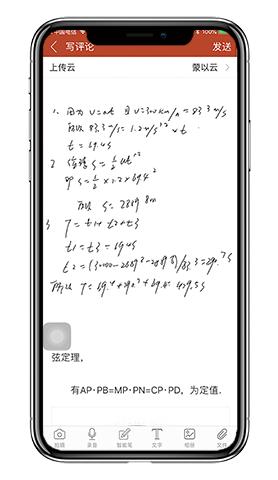 中国电信 100%
写评论 发送
上传云 蒙以云
1. 因为 V=at 且 V=300km/h=83.3m/s
所以 83.3m/s=1.2m/s² × t
t=69.4s
2 位移 S=½at²
即 S=½×1.2×69.4²
所以 S=2889.8m
3 T=t1+t2+t3
t1=t3=69.4s
弦定理，
有AP·PB=MP·PN=CP·PD，为定值.
拍摄 录音 智能笔 文字 相册 文件